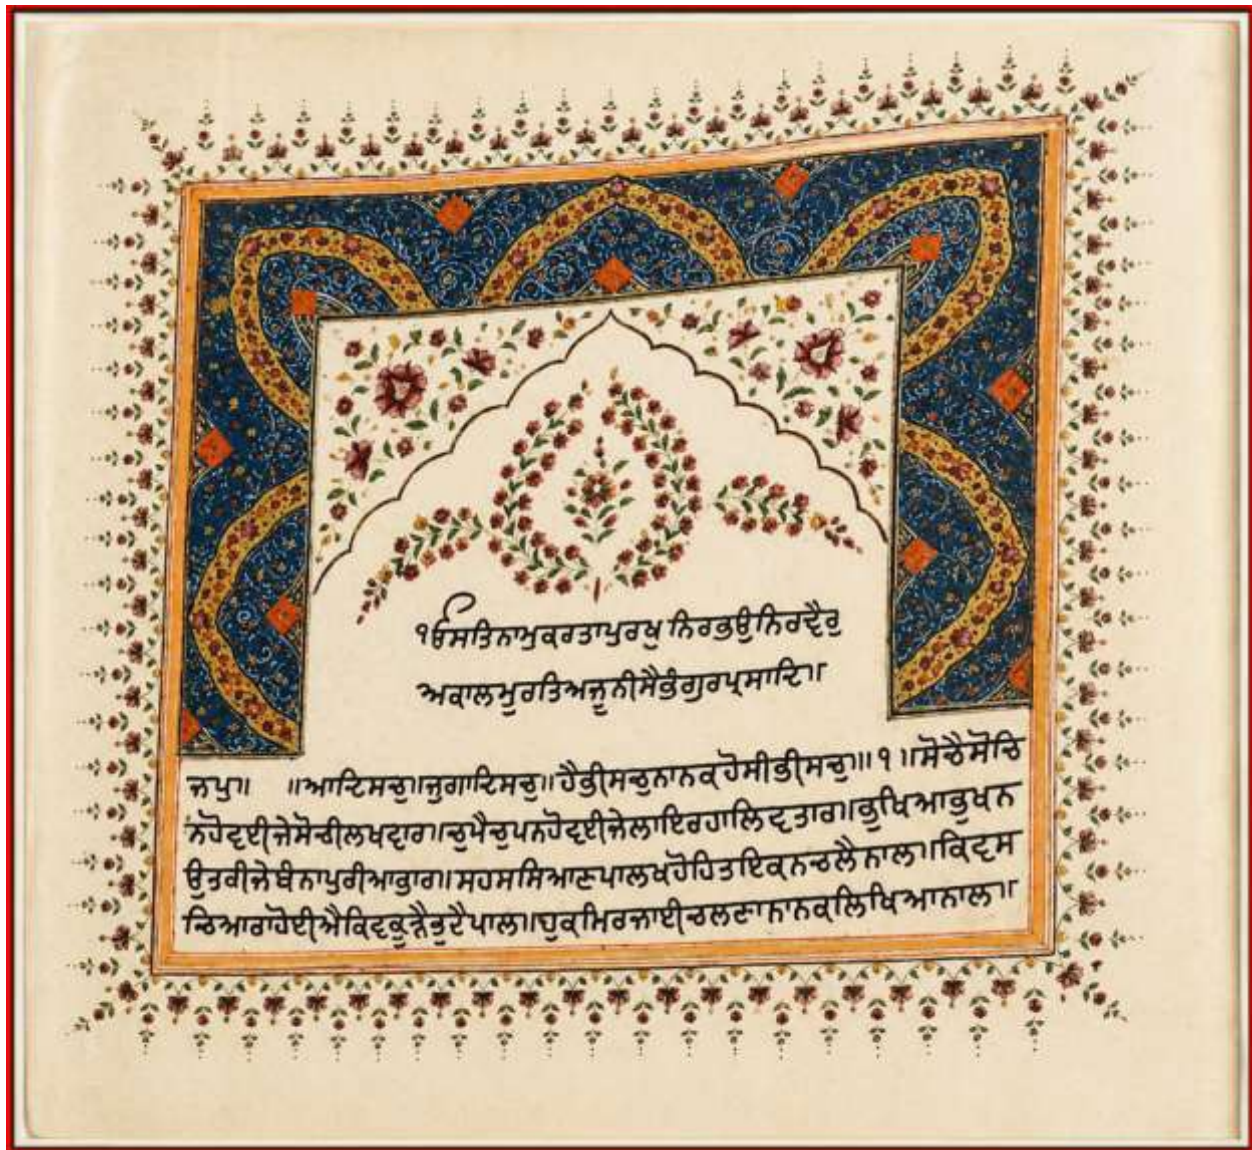 ੧ੳਸਤਿਨਾਮੁਕਰਤਾਪੁਰਖੁ ਨਿਰਭਉਨਿਰਵੈਰੁ
ਅਕਾਲਮੂਰਤਿਅਜੂਨੀਸੈਭੰਗੁਰਪ੍ਰਸਾਦਿ॥
ਜਪੁ॥ ॥ਆਦਿਸਚੁ॥ਜੁਗਾਦਿਸਚੁ॥ਹੈਭੀਸਚੁਨਾਨਕਹੋਸੀਭੀਸਚੁ॥੧॥ਸੋਚੈਸੋਚਿ
ਨਹੋਵਈਜੇਸੋਚੀਲਖਵਾਰ॥ਚੁਪੈਚੁਪਨਹੋਵਈਜੇਲਾਇਰਹਾਲਿਵਤਾਰ॥ਭੁਖਿਆਭੁਖਨ
ਉਤਰੀਜੇਬੰਨਾਪੁਰੀਆਭਾਰ॥ਸਹਸਸਿਆਣਪਾਲਖਹੋਹਿਤਇਕਨਚਲੈਨਾਲ॥ਕਿਵਸ
ਚਿਆਰਾਹੋਈਐਕਿਵਕੂੜੈਤੁਟੈਪਾਲ॥ਹੁਕਮਿਰਜਾਈਚਲਣਾਨਾਨਕਲਿਖਿਆਨਾਲ॥